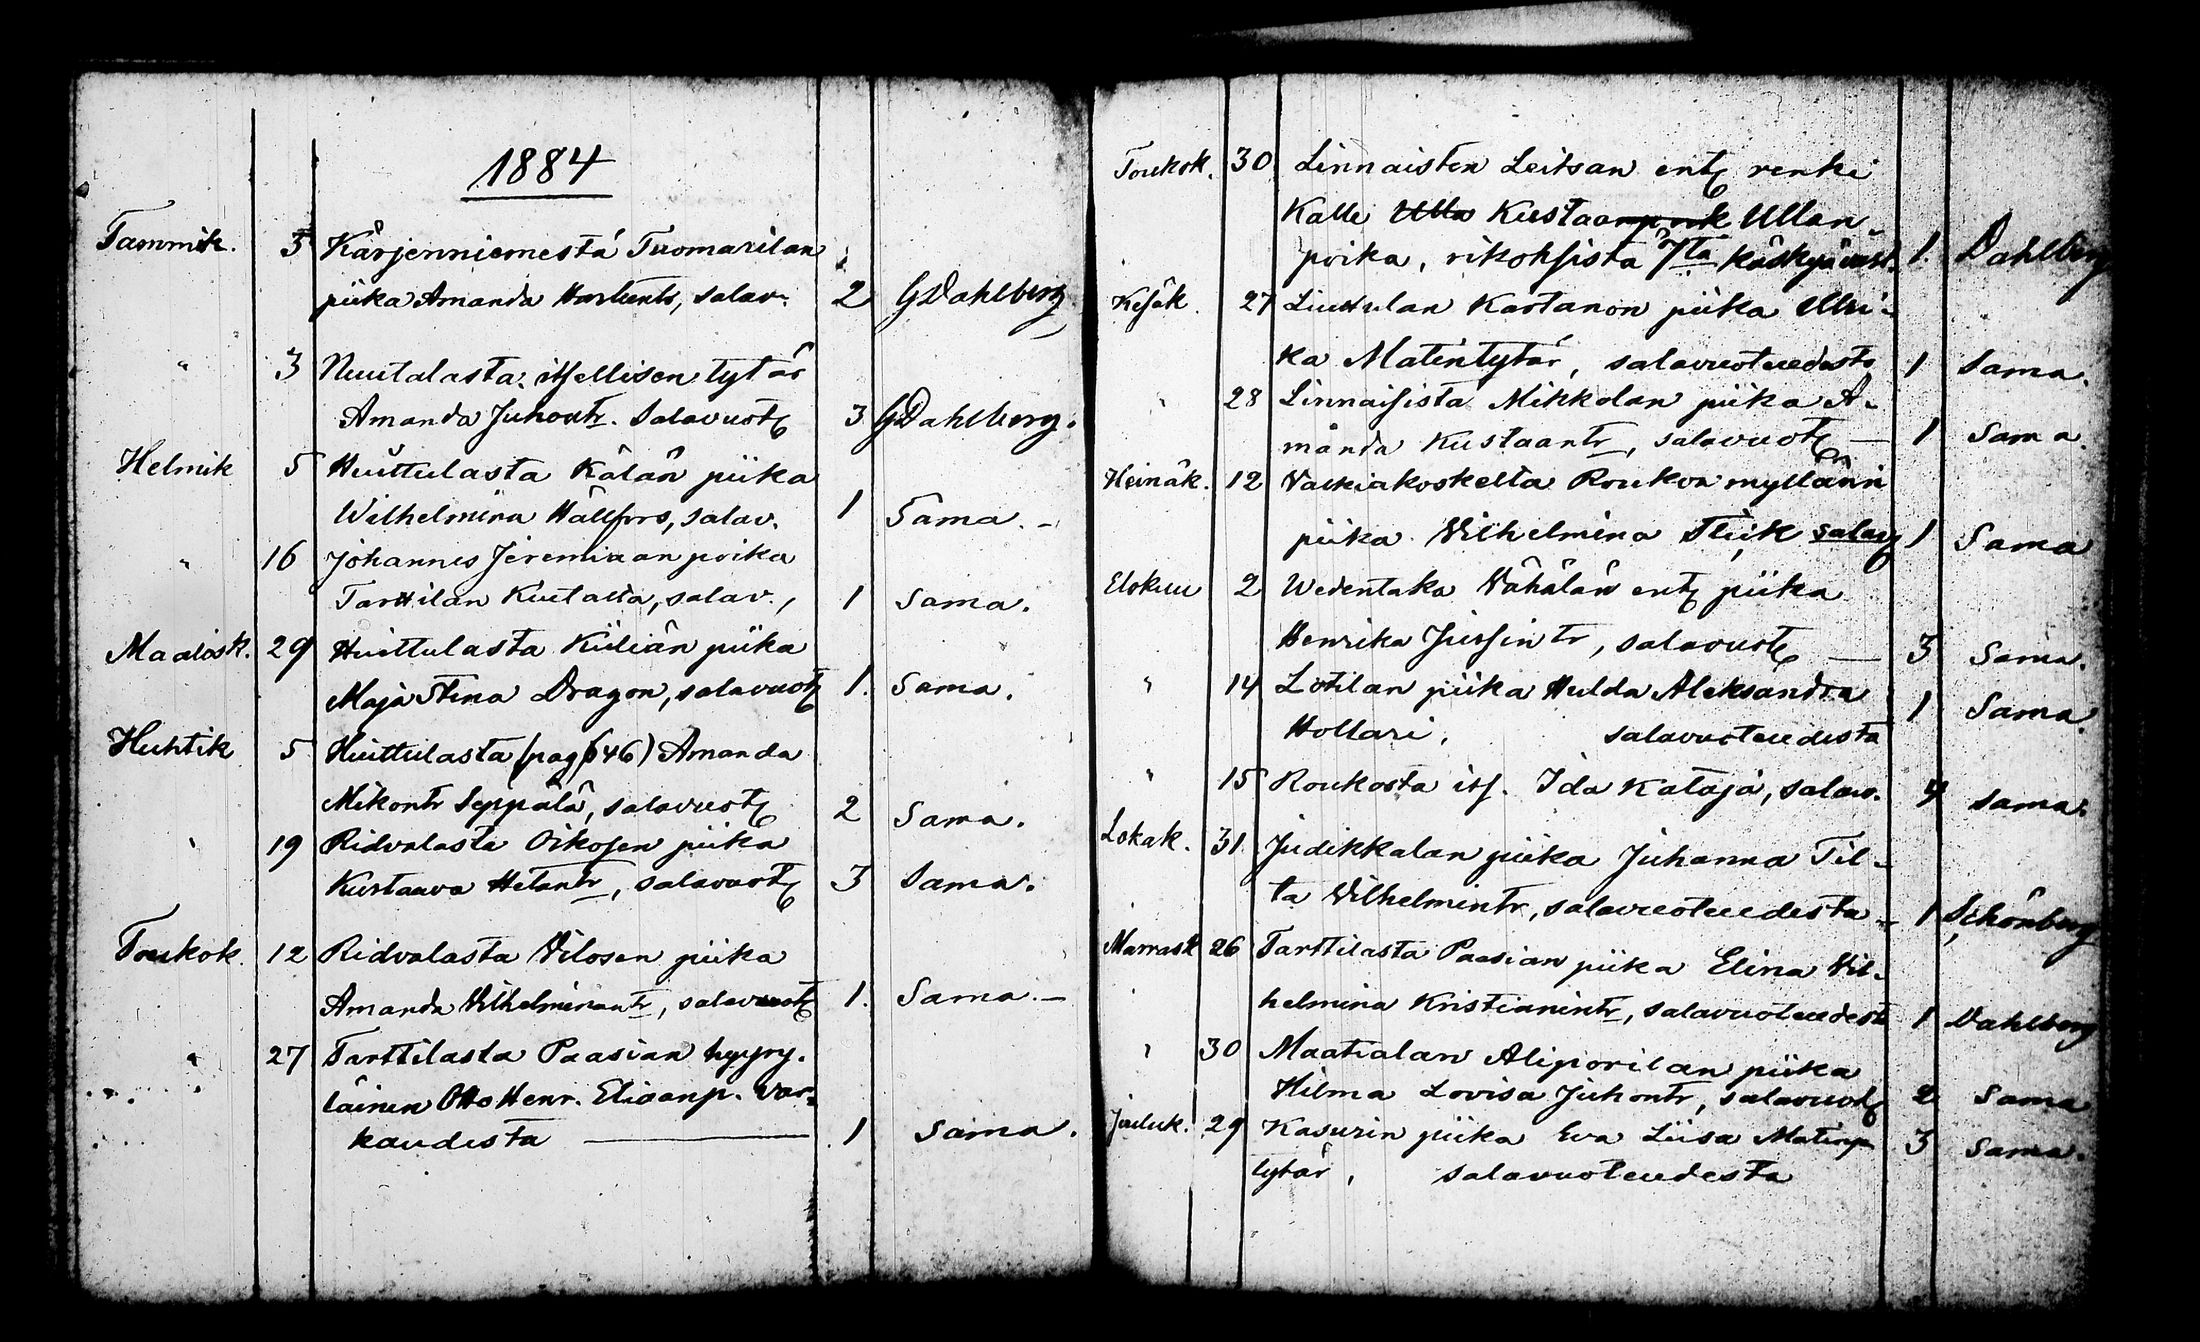 1884
Tammik. 3 Kärjenniemestä Tuomarilan
piika Amanda, salav. 2 GDahlberg
" 3 Nuutalasta itsellisen tytär
Amanda Juhontr. Salavuot 3 GDahlberg.
Helmik 5 Huittulasta Kälän piika
Wilhelmina Hällfors, salav. 1 Sama.-
" 16 Johannes Jeremiaan poika
Tarttilan, salav., 1 Sama.
Maalisk. 29 Huittulasta Kiiliän piika
Maja Stina Dragon, salavuot 1. Sama.
Huhtik 5 Huittulasta (pag 646) Amanda
Mikontr Seppälä, salavuot 2 Sama.
" 19 Ridvalasta Oikosen piika
Kustaava, salavuot 3 Sama.
Toukok. 12 Ridvalasta Vilosen piika
Amanda Vilhelminantr, salavuot 1. Sama.-
" 27 Tarttilasta Paasian hyyry-
läinen Otto Henr. Eliaanp. Var-
kaudesta — 1 Sama.
Toukok. 30 Linnaisten Leitsan ent renki
Kalle Ulla Kustaanpoik Ullan-
poika, rikoksista 7ta käskyä vast. 1 Dahlberg
Kesäk. 27 Liuttulan Kartanon piika Ulri-
ka Matintytär, salavuoteudesta 1 Sama.
" 28 Linnaisista Mikkolan piika A-
manda Kustaantr, salavuot — 1 Sama.
Heinäk. 12 Valkiakoskelta Roukon myllärin
piika Vilhelmina salav 1 Sama
Elokuu 2 Wedentaka Vähälän ent piika
Henrika Jussintr, salavuot — 3 Sama.
" 14 Lotilan piika Hulda Aleksandra
Hollari, salavuoteudesta 1 Sama
" 15 Roukosta its. Ida Kataja, salav. 4 Sama.
Lokak. 31 Judikkalan piika Juhanna Til-
ta Vilhelmintr, salavuoteudesta- 1 Schönberg
Marrask 26 Tarttilasta Paasian piika Elina Vil-
helmina Kristianintr, salavuoteudest 1 Dahlberg
" 30 Maatialan Aliporilan piika
Hilma Lovisa Juhontr, salavuot 2 Sama
Jouluk. 29 Kasurin piika Eva Liisa Matin
tytär, salavuoteudesta 3 Sama.